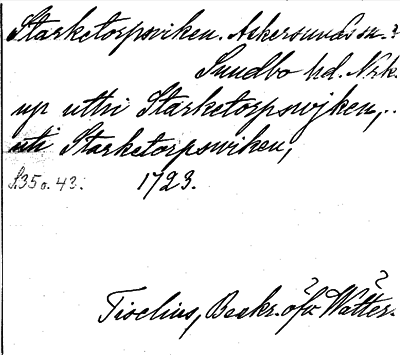 Starketorpsviken. Askersunds sn. ?
Sundbo hd. Nrk.
up uthi Starketorpswjken,..
uti Starketorpswiken,
S. 35 o. 43. 1723.
Tiselius, Beskr. öfv. Wätter.